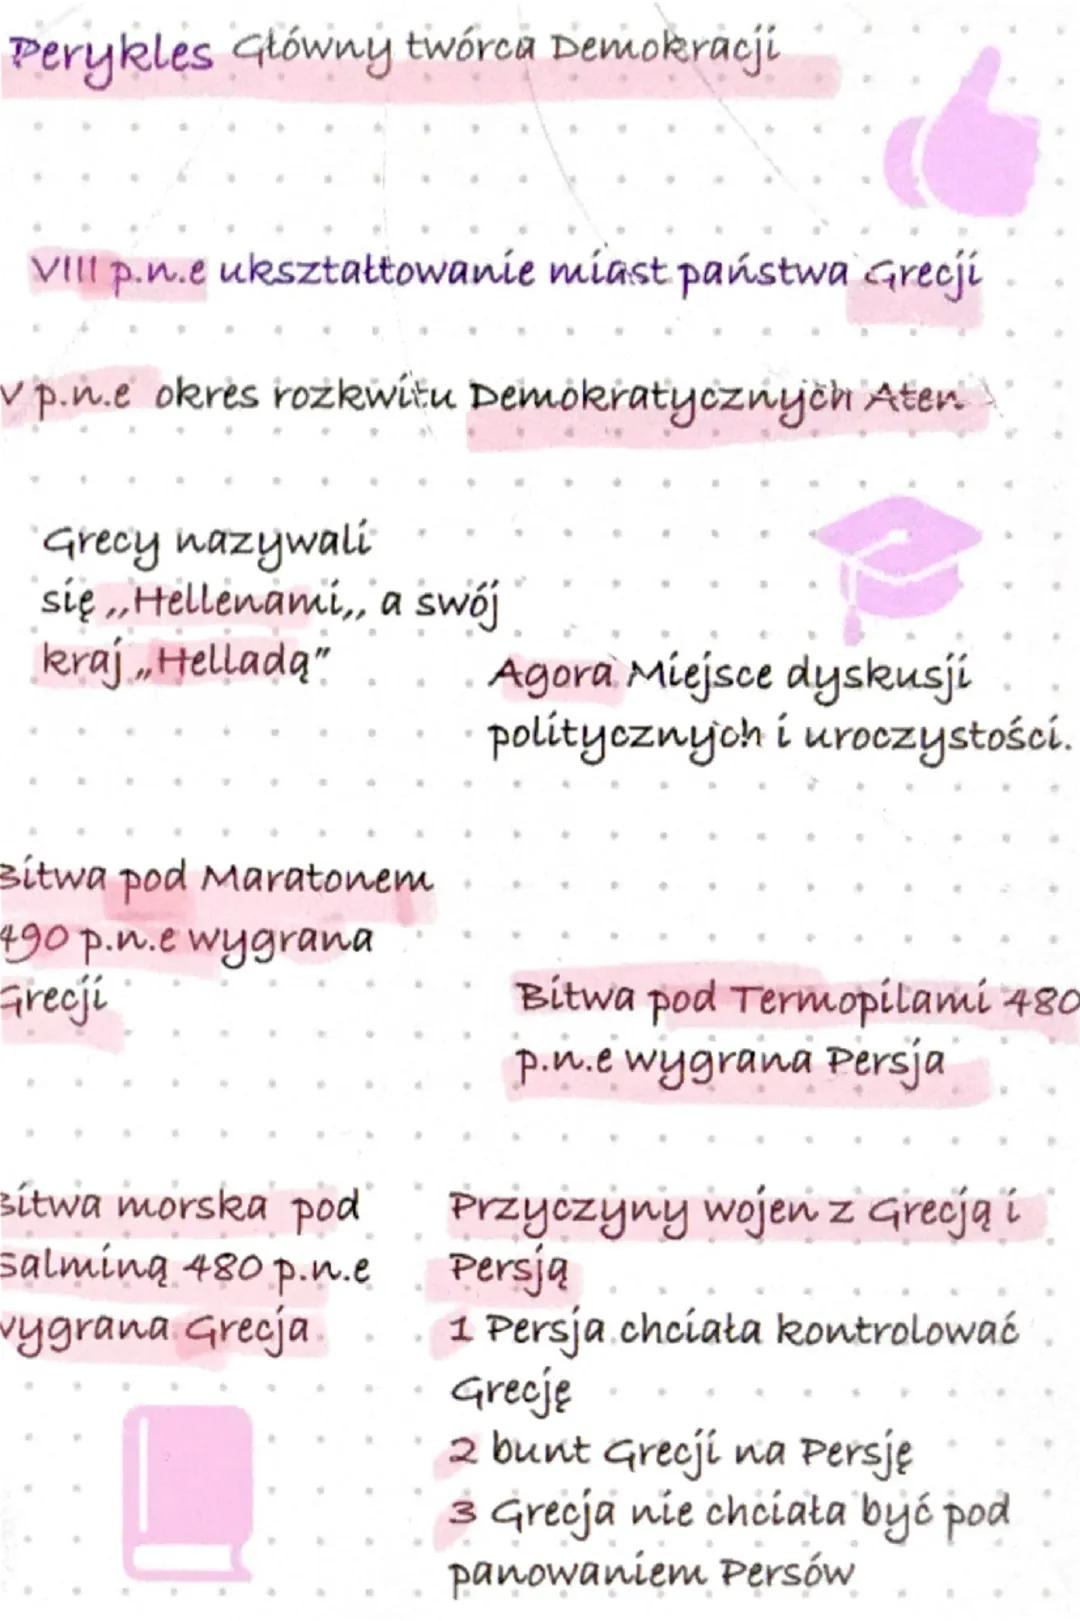 Perykles Główny twórca Demokracji
VIII p.n.e ukształtowanie miast państwa Grecji
V p.n.e okres rozkwitu Demokratycznych Aten
Grecy nazywali
się ,,Hellenami,, a swój
kraj „Helladą”
Agora Miejsce dyskusji
politycznych i uroczystości.
Bitwa pod Maratonem
490 p.n.e wygrana
Grecji
Bitwa pod Termopilami 480
p.n.e wygrana Persja
Bitwa morska pod
Salminą 480 p.n.e
wygrana Grecja
Przyczyny wojen z Grecją i
Persją
1 Persja chciała kontrolować
Grecję
2 bunt Grecji na Persję
3 Grecja nie chciała być pod
panowaniem Persów